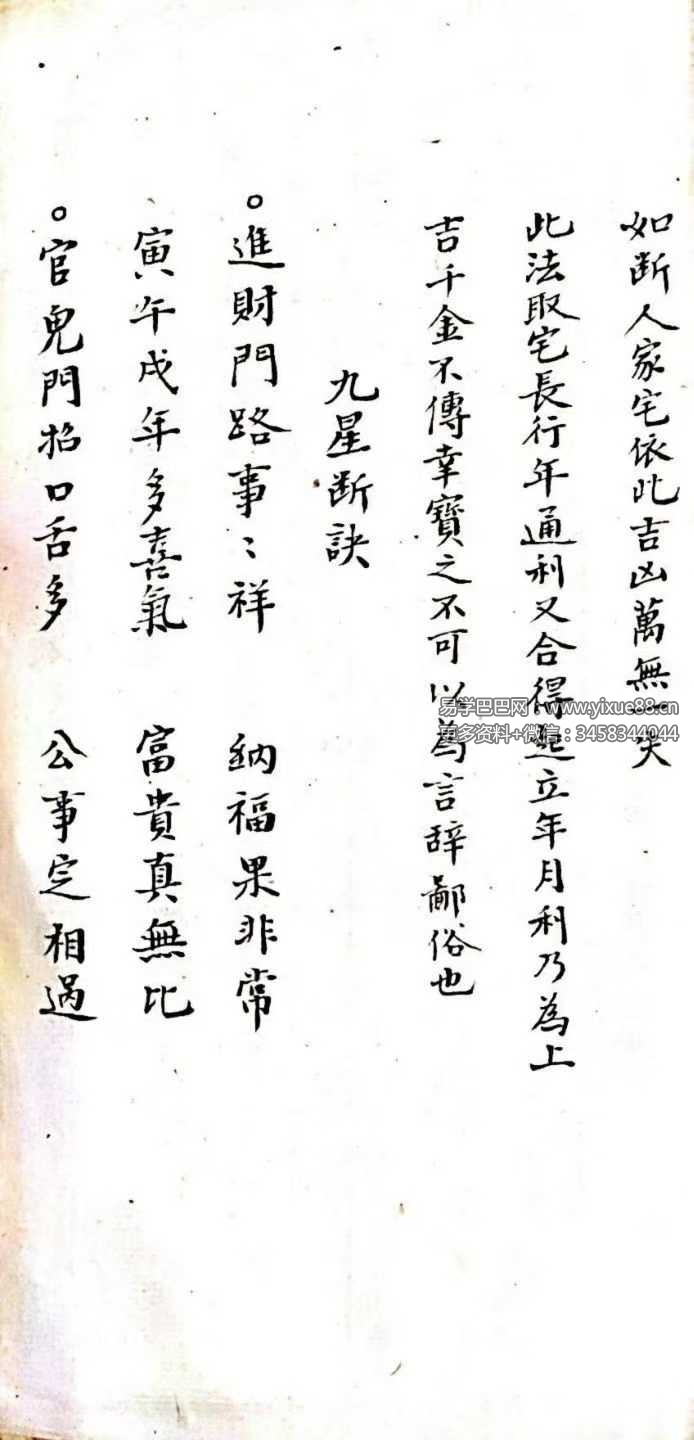 如断人家宅依此吉凶萬無一失
此法取宅長行年通利又合得起立年月利乃為上
吉千金不傳幸寶之不可以為言辞鄙俗也
九星断訣
。進財門路事〻祥 納福果非常
寅午戌年多喜氣 富貴真無比
。官鬼門招口舌多 公事定相遇
易学巴巴网 www.yixue88.cn
更多资料+微信：3458344044